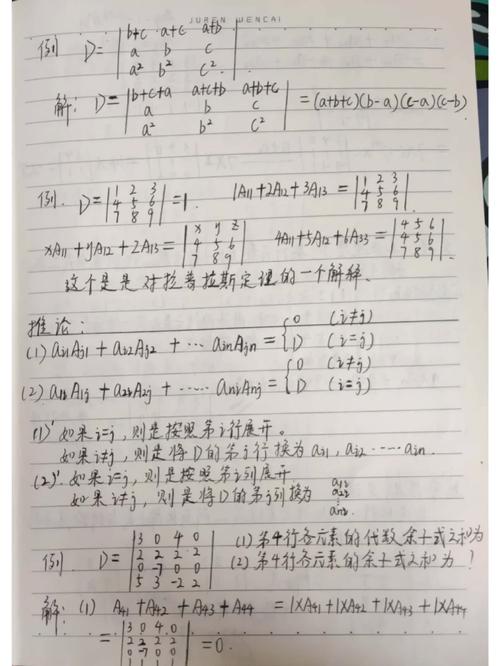 JUREN WENCAI
例 D = | b+c a+c a+b |
| a b c |
| a² b² c² |
解: D = | b+c+a a+c+b a+b+c | = (a+b+c)(b-a)(c-a)(c-b)
| a b c |
| a² b² c² |
例. D = | 1 2 3 | = 1. 1A₁₁+2A₁₂+3A₁₃ = | 1 2 3 |
| 4 5 6 | | 4 5 6 |
| 7 8 9 | | 7 8 9 |
xA₁₁+yA₁₂+2A₁₃ = | x y z | 4A₁₁+5A₁₂+6A₃₃ = | 4 5 6 |
| 4 5 6 | | 4 5 6 |
| 7 8 9 | | 7 8 9 |
这个是是对拉普拉斯定理的一个解释.
推论:
(1) aᵢ₁Aⱼ₁ + aᵢ₂Aⱼ₂ + … aᵢₙAⱼₙ = { 0 (i≠j)
D (i=j)
(2) a₁ᵢA₁ⱼ + a₂ᵢA₂ⱼ + …… aₙᵢAₙⱼ = { 0 (i≠j)
D (i=j)
(1)' 如果i=j,则是按照第i行展开。
如果i≠j,则是将D的第j行换为aᵢ₁,aᵢ₂ ……aᵢₙ.
(2)'. 如果i=j,则是按照第i列展开
如果i≠j,则是将D的第j列换为 a₁ᵢ
a₂ᵢ
⋮
aₙᵢ
例. D = | 3 0 4 0 | (1) 第4行各元素的代数余十式之和为
| 2 2 2 2 | (2) 第4行各元素的余十式之和为 ?
| 0 -7 0 0 |
| 5 3 -2 2 |
解: (1) A₄₁ + A₄₂ + A₄₃ + A₄₄ = 1×A₄₁ + 1×A₄₂ + 1×A₄₃ + 1×A₄₄
= | 3 0 4 0 | = 0.
| 2 2 2 2 |
| 0 -7 0 0 |
| 1 1 1 1 |